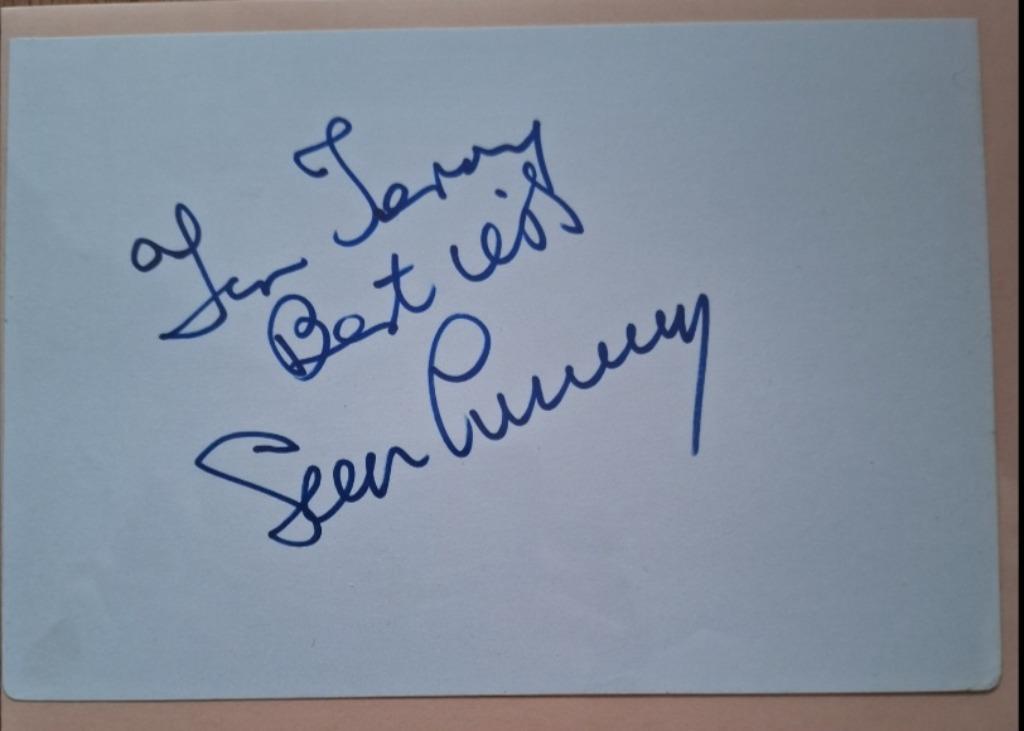 For Terry
Best wishes
Sean Connery